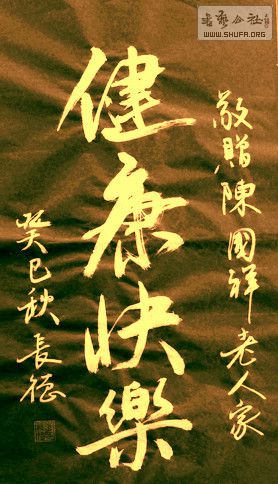 敬贈陳國祥老人家
健康快樂
癸巳秋長德
書藝公社
WWW.SHUFA.ORG